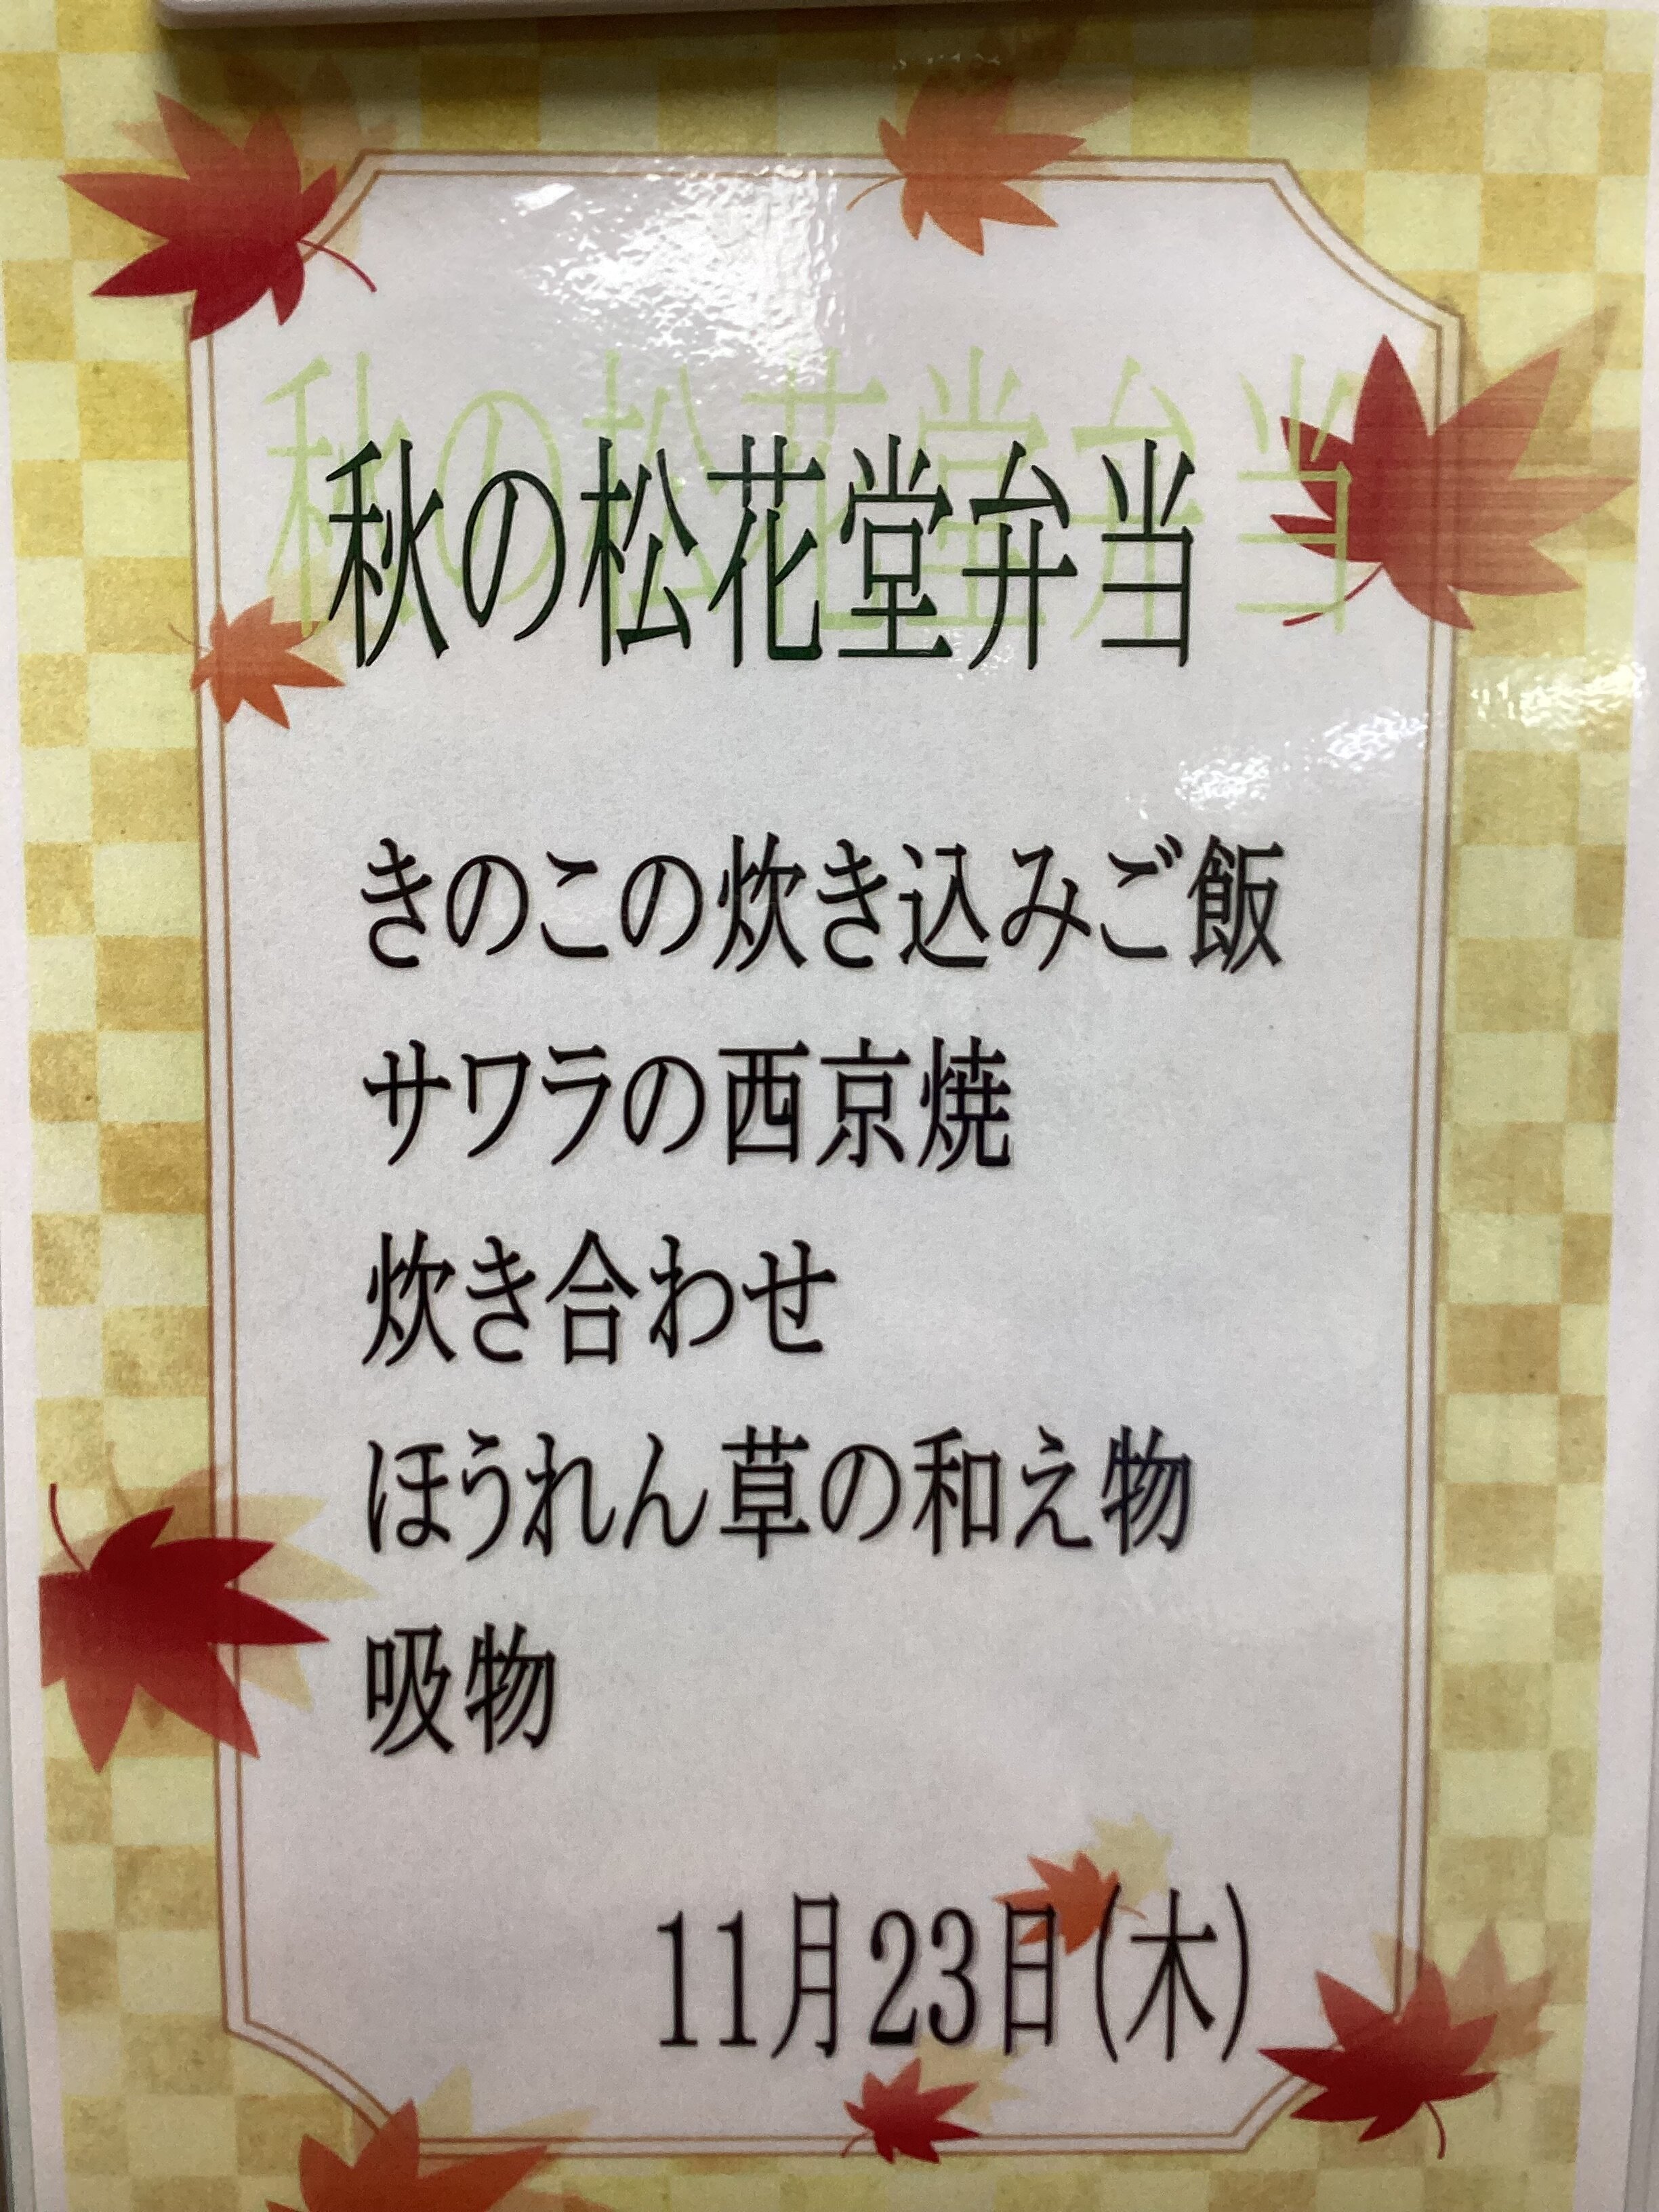 秋の松花堂弁当
きのこの炊き込みご飯
サワラの西京焼
炊き合わせ
ほうれん草の和え物
吸物
11月23日(木)